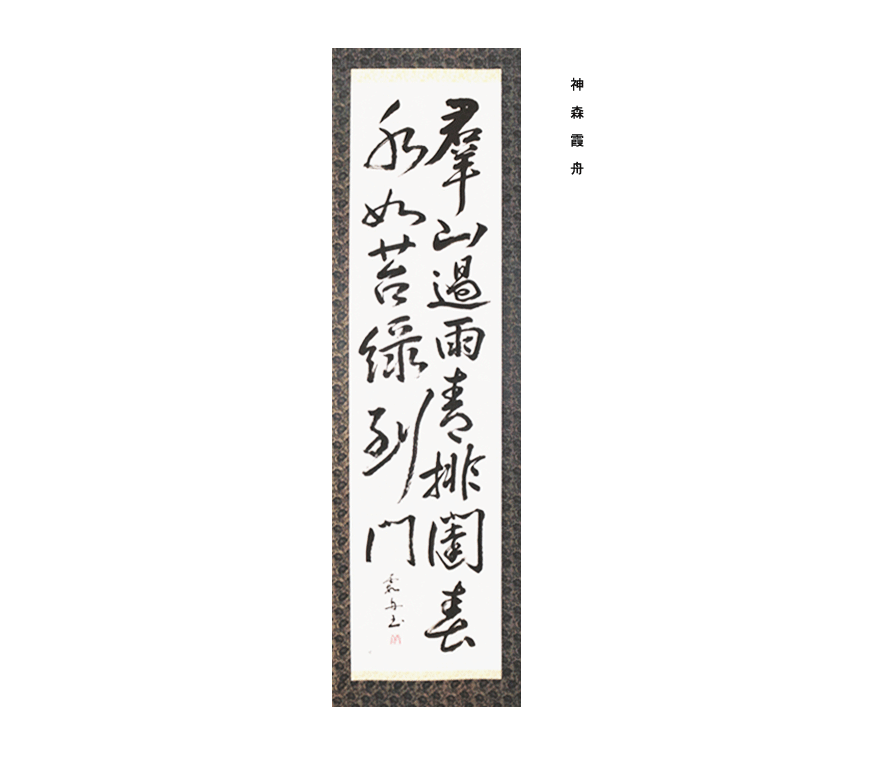 神森霞舟
羣山過雨青排闥春
水如苔緑到門
霞舟